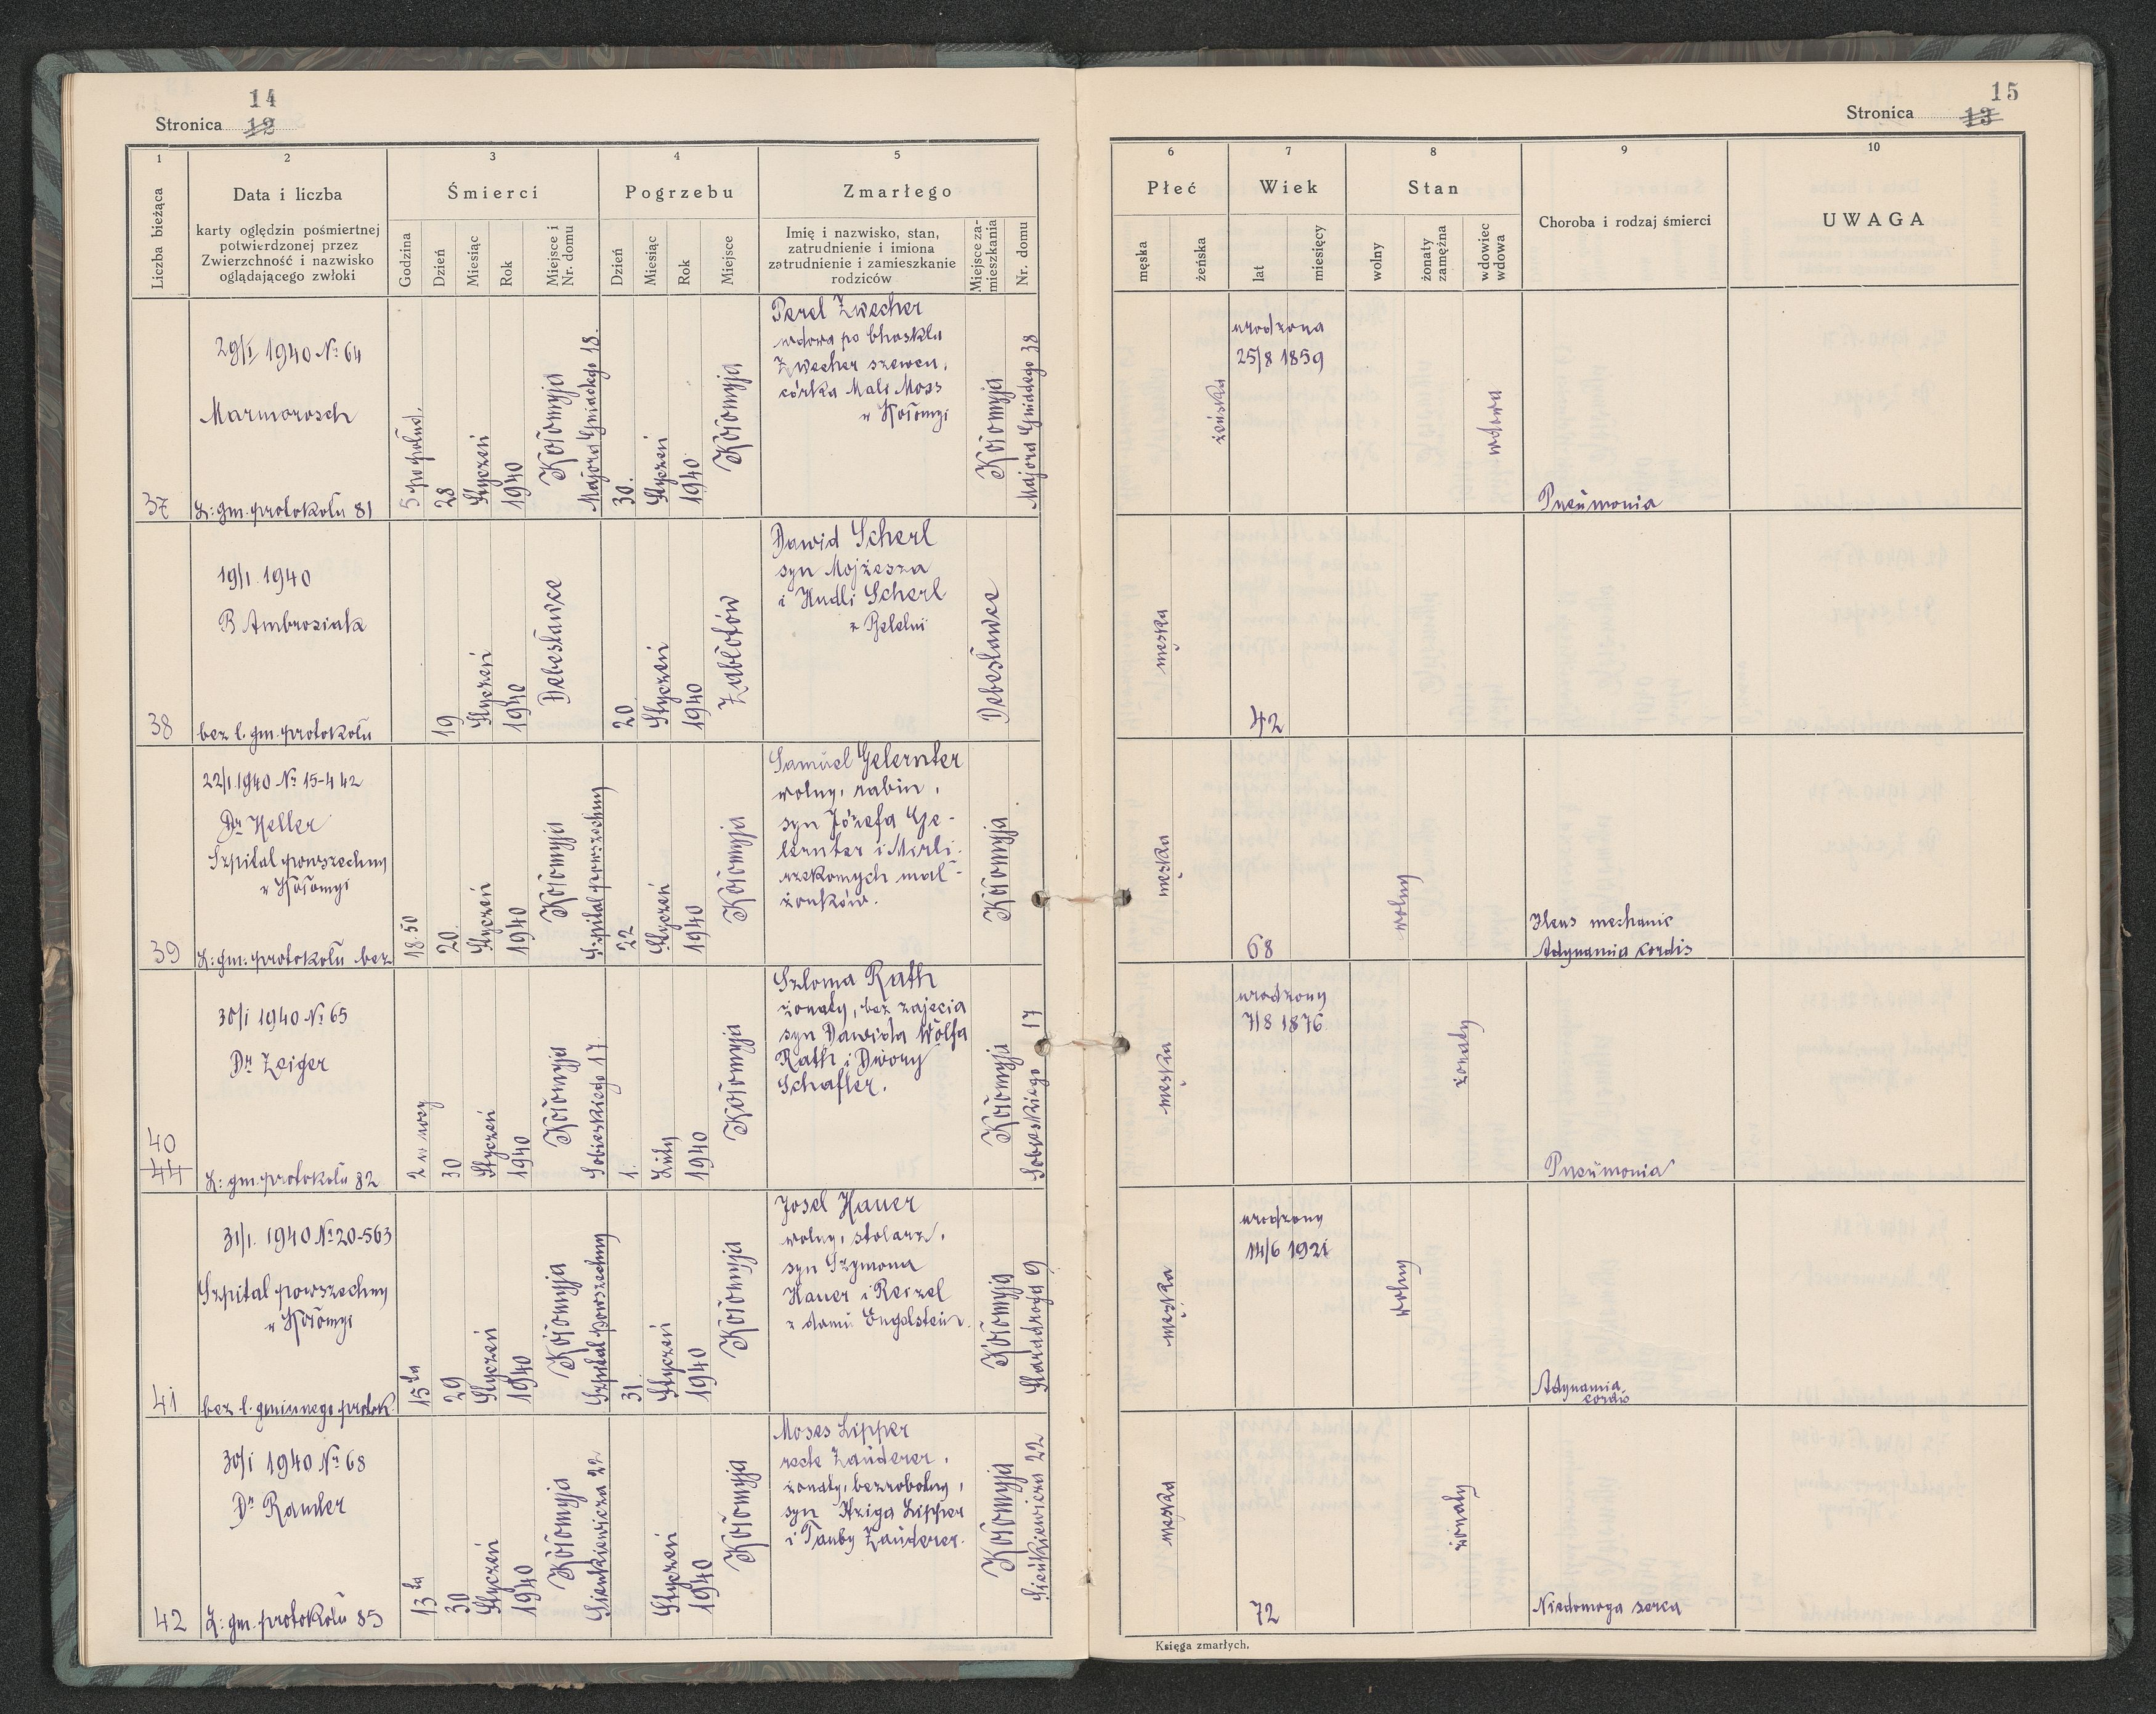 14
Stronica 12
1
2
3
4
5
Liczba bieżąca
Data i liczba
karty oględzin pośmiertnej
potwierdzonej przez
Zwierzchność i nazwisko
oglądającego zwłoki
Śmierci
Godzina
Dzień
Miesiąc
Rok
Miejsce i
Nr. domu
Pogrzebu
Dzień
Miesiąc
Rok
Miejsce
Zmarłego
Imię i nazwisko, stan,
zatrudnienie i imiona
zatrudnienie i zamieszkanie
rodziców
Miejsce za-
mieszkania
Nr. domu
37
29/I 1940 № 64
Marmorosch
L: gm. protokolu 81
5 po połud.
28
Styczeń
1940
Kołomyja
Majora Gniadego 18.
30.
Styczeń
1940
Kołomyja
Perel Zwecher
wdowa po
Zwecher szewcu,
córka Mali Moss
w Kołomyi
Kołomyja
Majora Gniadego 38
38
19/I. 1940
B Ambroziak
bez l. gm. protokolu
19
Styczeń
1940
Debesławce
20
Styczeń
1940
Zabłotów
Dawid Scherl
syn Mojżesza
i Hudli Scherl
z
Debesławce
39
22/I 1940 № 15-442
Dr Heller
Szpital powszechny
w Kołomyi
L: gm: protokolu bez
18.50
20.
Styczeń
1940
Kołomyja
Szpital powszechny
22
Styczeń
1940
Kołomyja
Samuel Gelernter
wolny, rabin,
syn Józefa Ge-
lernter i Mirli
rzekomych mał-
żonków.
Kołomyja
40
44
30/I 1940 № 65
Dr Zeiger
L: gm. protokolu 82
2 w nocy
30
Styczeń
1940
Kołomyja
Sobieskiego 17.
1.
Luty
1940
Kołomyja
Szloma Rath
żonaty, bez zajęcia
syn Dawida Wolfa
Rath i Dwory
Schafler.
Kołomyja
Sobieskiego 17
41
31/I. 1940 № 20-563
Szpital powszechny
w Kołomyi
bez l. gminnego protok.
15ta
29
Styczeń
1940
Kołomyja
Szpital powszechny
31.
Styczeń
1940
Kołomyja
Josel Hauer
wolny, stolarz,
syn Szymona
Hauer i Reizel
z domu Engelstein.
Kołomyja
Staradroga 9
42
30/I 1940 № 68
Dr Ramler
L: gm. protokolu 85
13ta
30
Styczeń
1940
Kołomyja
Sienkiewicza 22
Styczeń
1940
Kołomyja
Moses Lipper
recte Zauderer,
żonaty, bezrobotny,
syn Itziga Lipper
i Tauby Zauderer.
Kołomyja
Sienkiewicza 22
15
Stronica 13
6
7
8
9
10
Płeć
męska
żeńska
Wiek
lat
miesięcy
Stan
wolny
żonaty
zamężna
wdowiec
wdowa
Choroba i rodzaj śmierci
UWAGA
żeńska
urodzona
25/8 1859
wdowa
Pneumonia
męska
42
męska
68
wolny
Ileus mechanic
Adynamia cordis
męska
urodzony
7/8 1876
żonaty
Pneumonia
męska
urodzony
14/6 1921
wolny
Adynamia
cordis
męska
72
żonaty
Niedomoga serca
Księga zmarłych.